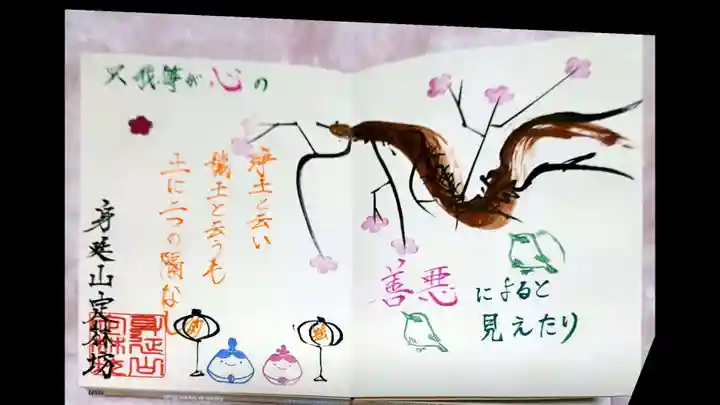 浄土と云い
穢土と云うも
土に二つの隔なし
只我等が心の
善悪によると
見えたり
身延山定林坊